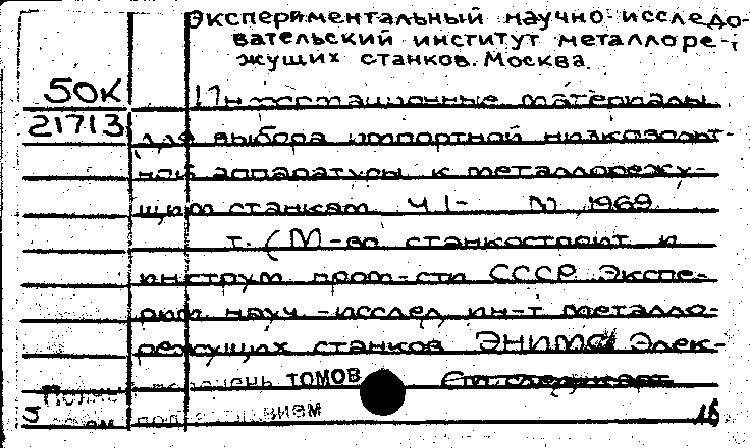 Экспериментальный научно-исследо-
вательский институт металлоре-
жущих станков. Москва.
50К Информационные материалы
21713 для выбора импортной низковольт-
ной аппаратуры к металлорежу-
щим станкам Ч 1- М 1969
т. (М-во станкостроит и
инструм пром-сти СССР Экспе-
рим науч -исслед ин-т металло-
режущих станков ЭНИМС Элек-
томов
16